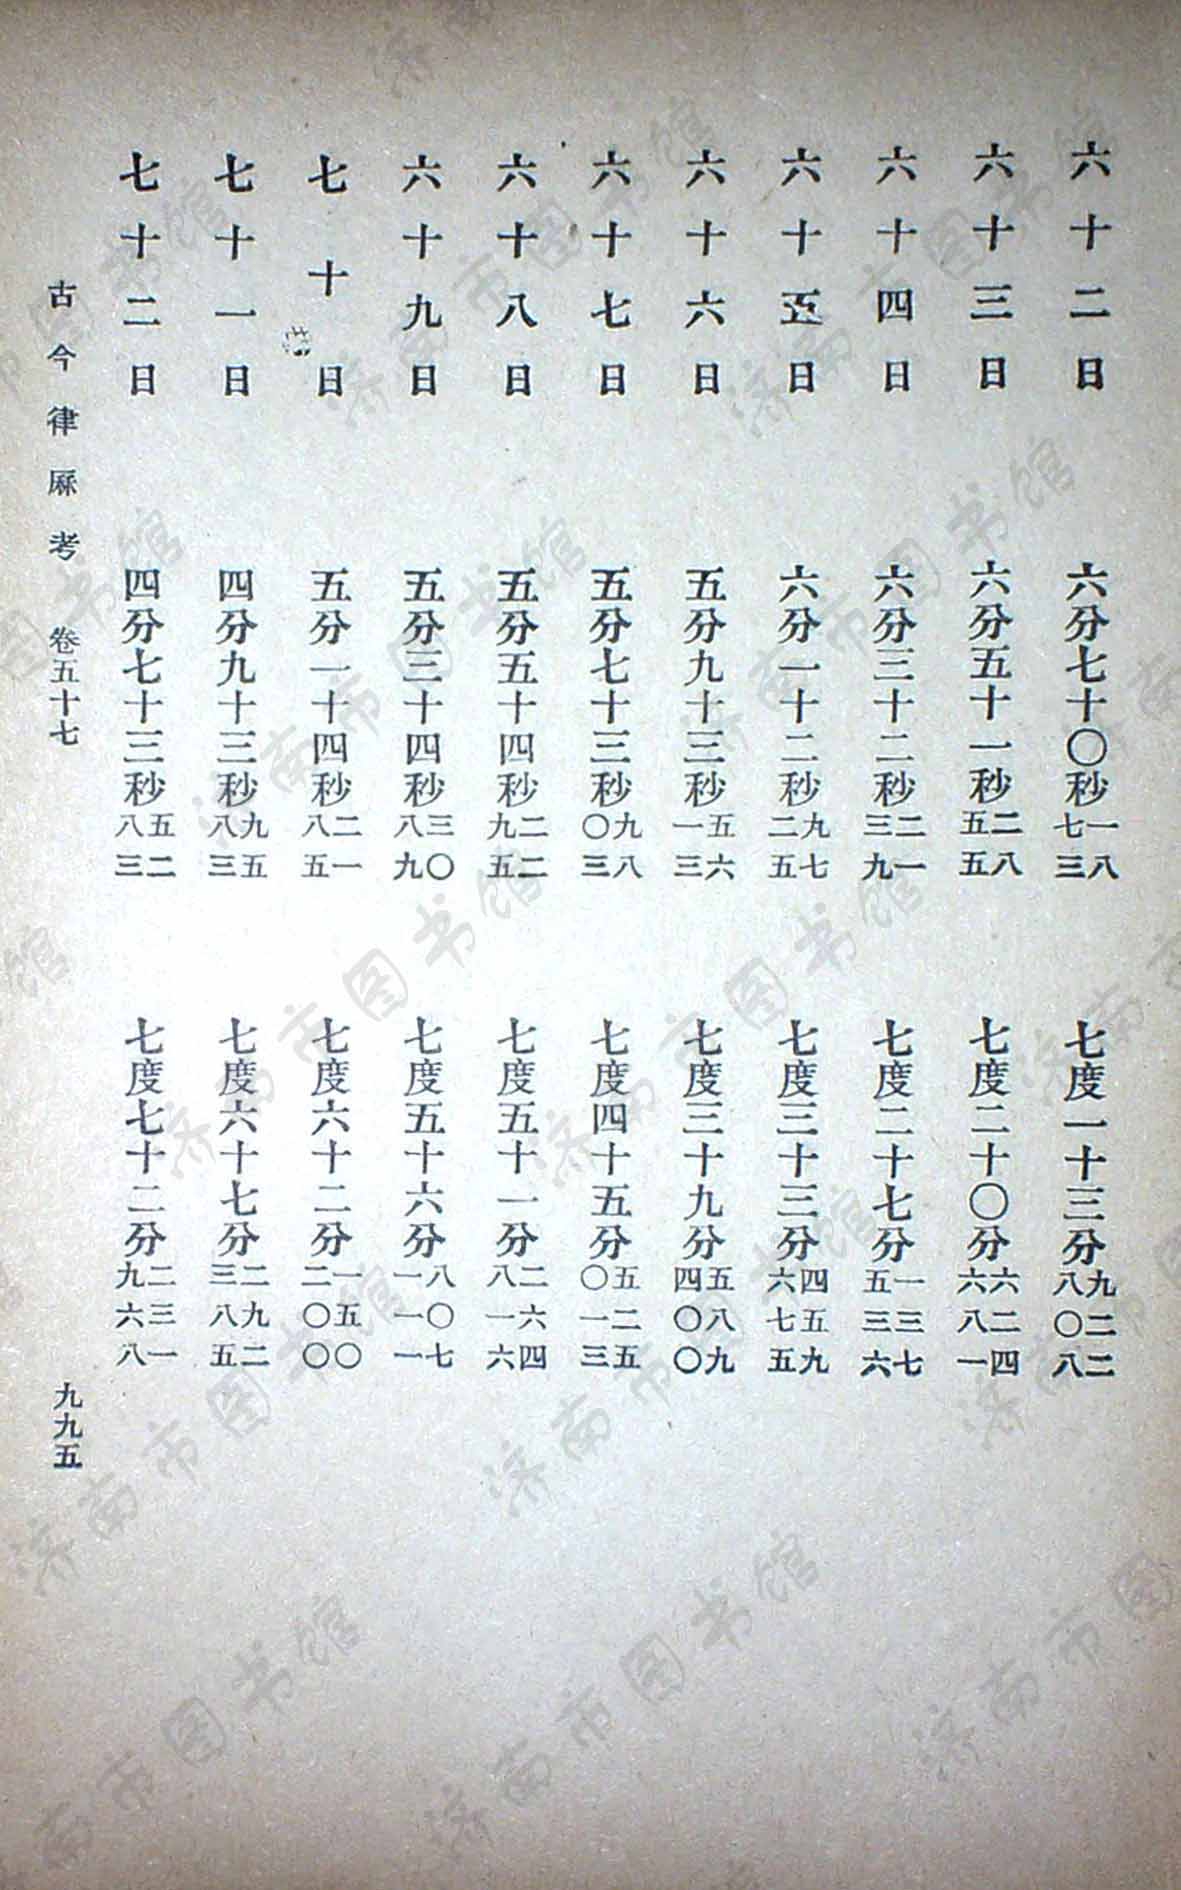 六十二日　六分七十〇秒一八七三　七度一十三分九二二八〇八
六十三日　六分五十一秒二八五五　七度二十〇分六二四六八一
六十四日　六分三十二秒二一三九　七度二十七分一三七五三六
六十五日　六分一十二秒九七二五　七度三十三分四五九六七五
六十六日　五分九十三秒五六一三　七度三十九分五八九四〇〇
六十七日　五分七十三秒九八〇三　七度四十五分五二五〇一三
六十八日　五分五十四秒二二九五　七度五十一分二六四八一六
六十九日　五分三十四秒三〇八九　七度五十六分八〇七一一一
七十日　五分一十四秒二一八五　七度六十二分一五〇二〇〇
七十一日　四分九十三秒九五八三　七度六十七分二九二三八五
七十二日　四分七十三秒五二八三　七度七十二分二三一九六八
古今律厤考　卷五十七　九九五
济南市图书馆